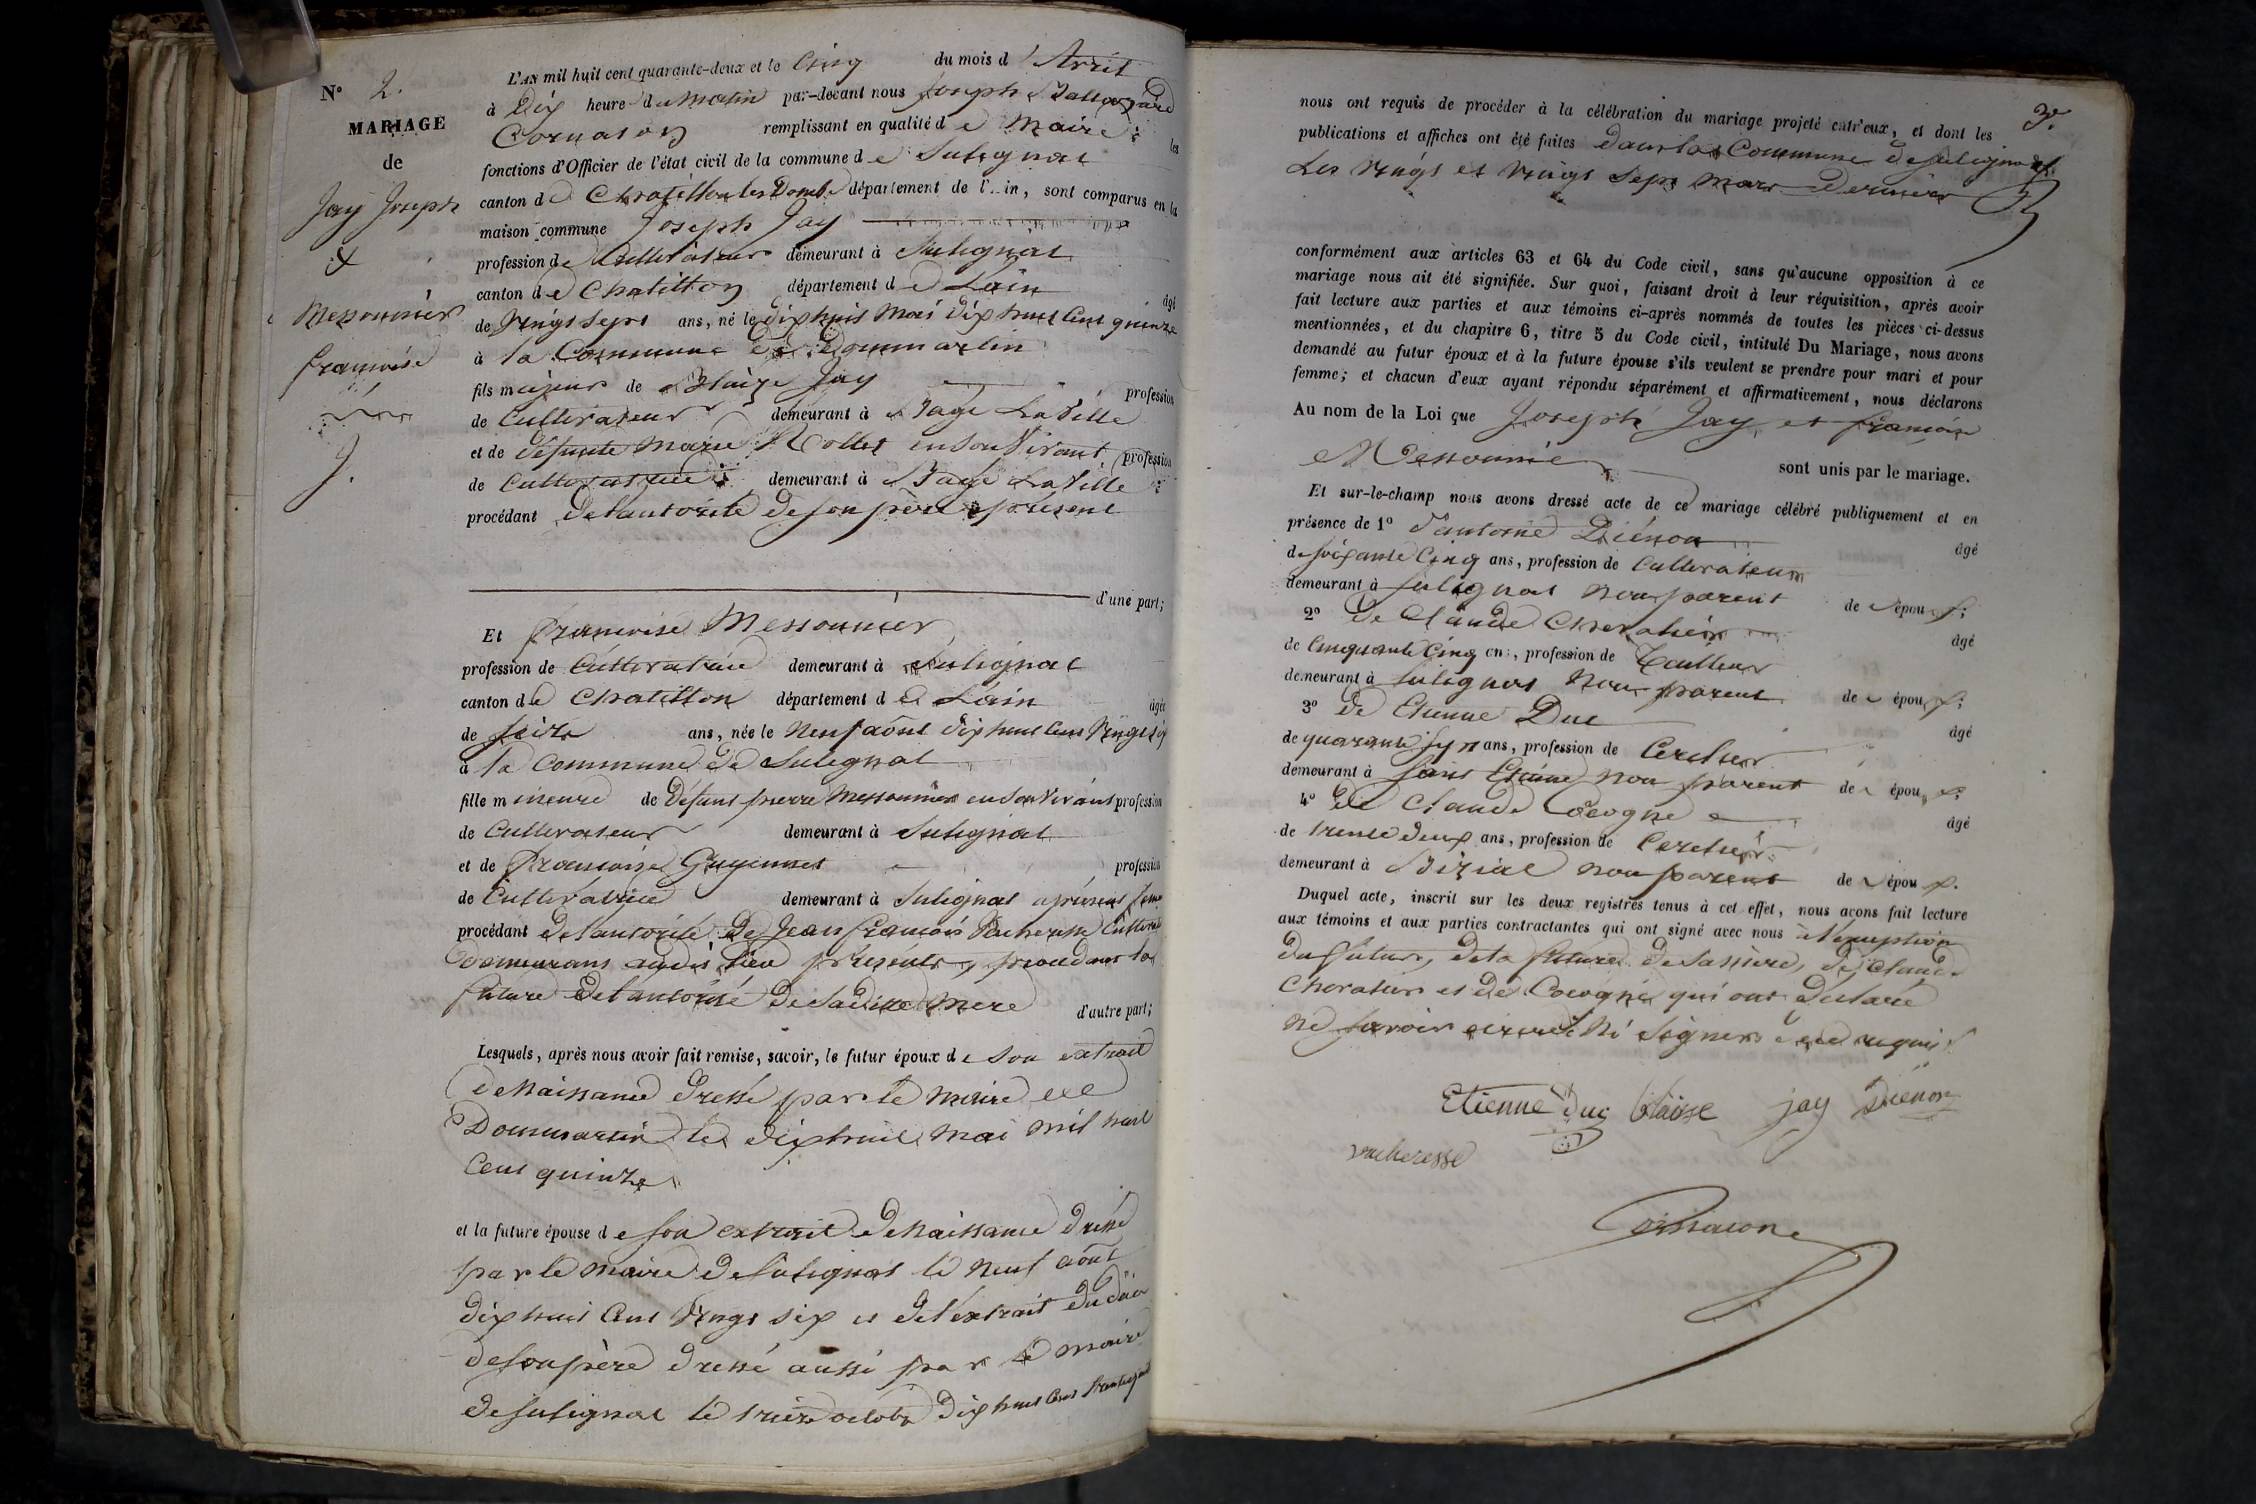 N° 2.
MARIAGE
de
Jay Joseph
&
Messonnier
françoise
L'AN mil huit cent quarante-deux et le Cinq du mois d'Avril
à Dix heure du Matin par-devant nous Joseph Baltazard
Cornaton remplissant en qualité de Maire les
fonctions d'Officier de l'état civil de la commune de Sulignat
canton de Chatillon les Dombe département de l'Ain, sont comparus en la
maison commune Joseph Jay
profession de Cultivateur demeurant à Sulignat
canton de Chatillon département de Lain âgé
de Vingt sept ans, né le dix huit Mai dix huit Cent quinze
à la Commune de Dommartin
fils majeur de Blaize Jay profession
de Cultivateur demeurant à Bagé La Ville
et de défunte Marie Collet en son Vivant profession
de Cultivatrice demeurant à Bagé La Ville
procédant de l'autorité de son père présent
d'une part;
Et françoise Messonnier
profession de Cultivatrice demeurant à Sulignat
canton de Chatillon département de Lain âgée
de seize ans, née le neuf août dix huit Cent Vingt six
à la Commune de Sulignat
fille mineure de défunt pierre Messonnier en son Vivant profession
de Cultivateur demeurant à Sulignat
et de françoise Guyennet profession
de Cultivatrice demeurant à Sulignat aprésent feme
procédant de l'autorité de Jean françois Vacheresse Cultiva
demeurans audit lieu présents, procédant la
future de l'autorité de sadite Mere d'autre part;
Lesquels, après nous avoir fait remise, savoir, le futur époux de son extrait
de Naissance dressé par le Maire de
Dommartin le dix huit Mai mil huit
Cent quinze
et la future épouse de son extrait de Naissance dressé
par le Maire de Sulignat le neuf août
dix huit Cent Vingt six et de l'extrait du décè
de son père dressé aussi par le Maire
de Sulignat le treize octobre dix huit Cent
3.
nous ont requis de procéder à la célébration du mariage projeté entr'eux, et dont les
publications et affiches ont été faites dans la Commune de Sulignat
Les Vingt et Vingt sept Mars dernier
conformément aux articles 63 et 64 du Code civil, sans qu'aucune opposition à ce
mariage nous ait été signifiée. Sur quoi, faisant droit à leur réquisition, après avoir
fait lecture aux parties et aux témoins ci-après nommés de toutes les pièces ci-dessus
mentionnées, et du chapitre 6, titre 5 du Code civil, intitulé Du Mariage, nous avons
demandé au futur époux et à la future épouse s'ils veulent se prendre pour mari et pour
femme; et chacun d'eux ayant répondu séparément et affirmativement, nous déclarons
Au nom de la Loi que Joseph Jay et françoise
Messonnier sont unis par le mariage.
Et sur-le-champ nous avons dressé acte de ce mariage célébré publiquement et en
présence de 1° d'antoine Diénon âgé
de soixante Cinq ans, profession de Cultivateur
demeurant à Sulignat non parent de s épou x;
2° de Claude Chevalier âgé
de Cinquante Cinq ans, profession de Tailleur
demeurant à Sulignat Non parent de s épou x;
3° de Etienne Duc âgé
de quarante ans, profession de Cerclier
demeurant à Saint Etienne non parent de s épou x;
4° de Claude Cocogne âgé
de trente deux ans, profession de Cerclier
demeurant à Biziat non parent de s épou x.
Duquel acte, inscrit sur les deux registres tenus à cet effet, nous avons fait lecture
aux témoins et aux parties contractantes qui ont signé avec nous à l'exception
du futur, de la future de sa mère, de Claude
Chevalier et de Cocogne qui ont déclaré
ne savoir écrire Ni Signer de ce requis
Etienne duc blaise jay Diénon
vacheresse
Cornaton